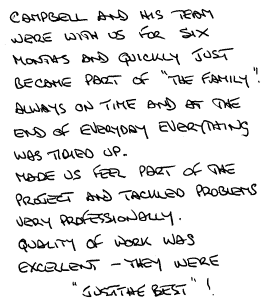 CAMPBELL AND HIS TEAM
WERE WITH US FOR SIX
MONTHS AND QUICKLY JUST
BECAME PART OF "THE FAMILY".
ALWAYS ON TIME AND AT THE
END OF EVERYDAY EVERYTHING
WAS TIDIED UP.
MADE US FEEL PART OF THE
PROJECT AND TACKLED PROBLEMS
VERY PROFESSIONALLY.
QUALITY OF WORK WAS
EXCELLENT - THEY WERE
"JUST THE BEST" !